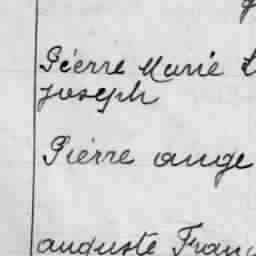 Pierre Marie
Joseph
Pierre ange
auguste Franç